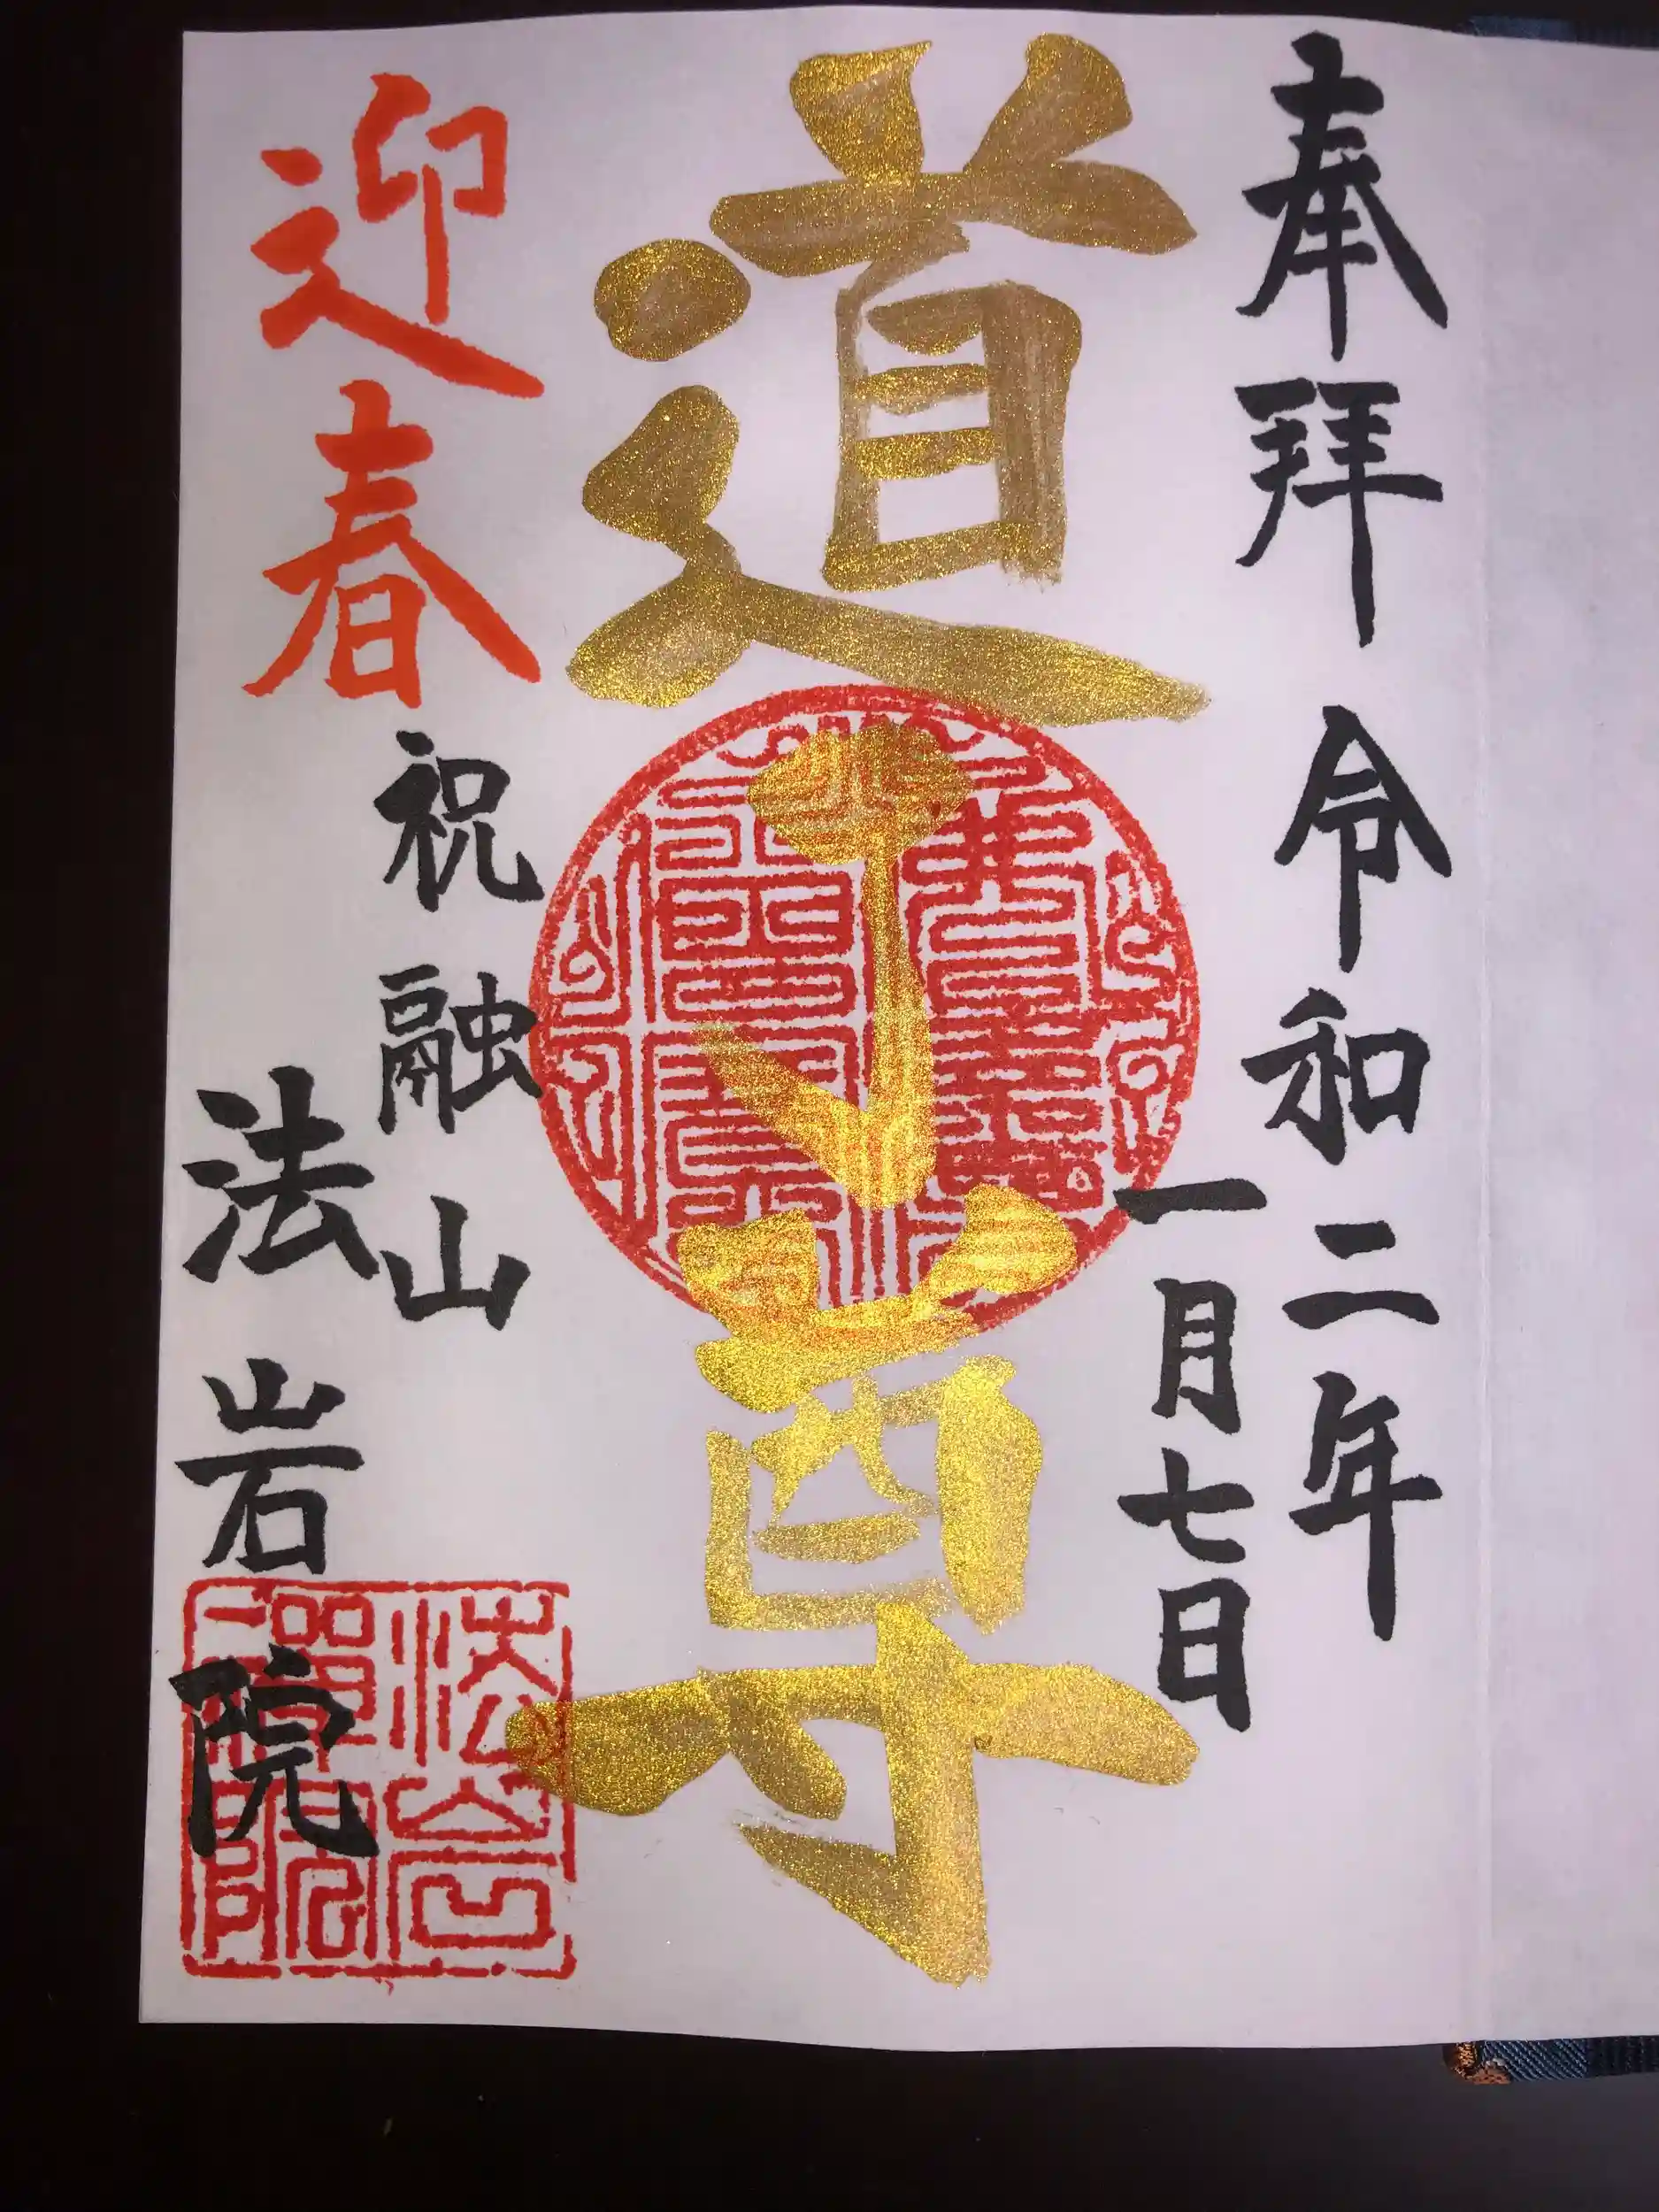 奉拝 令和二年
一月七日
道了尊
迎春
祝融山
法岩院
法岩禅院